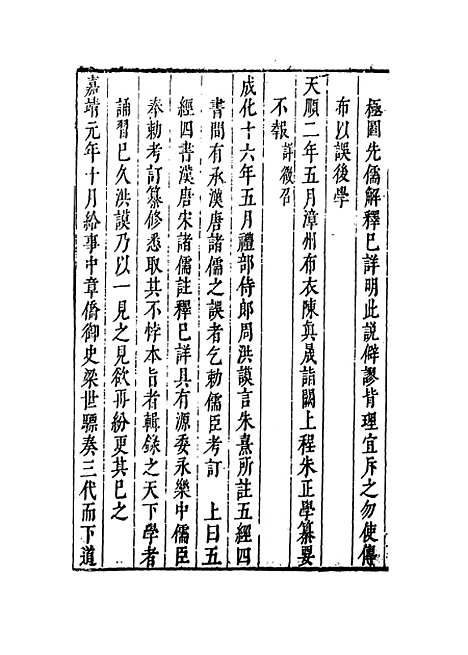 極圖先儒解釋已詳明此説僻謬背理宜斥之勿使傳
布以誤後學
天順二年五月漳州布衣陳眞晟詣闕上程朱正學纂要
不報詳徵召
成化十六年五月禮部侍郎周洪謨言朱熹所註五經四
書間有承漢唐諸儒之誤者乞勅儒臣考訂 上曰五
經四書漢唐宋諸儒註釋已詳具有源委永樂中儒臣
奉勅考訂纂修悉取其不悖本旨者輯錄之天下學者
誦習已久洪謨乃以一見之見欲再紛更其已之
嘉靖元年十月給事中章僑御史梁世驃奏三代而下道